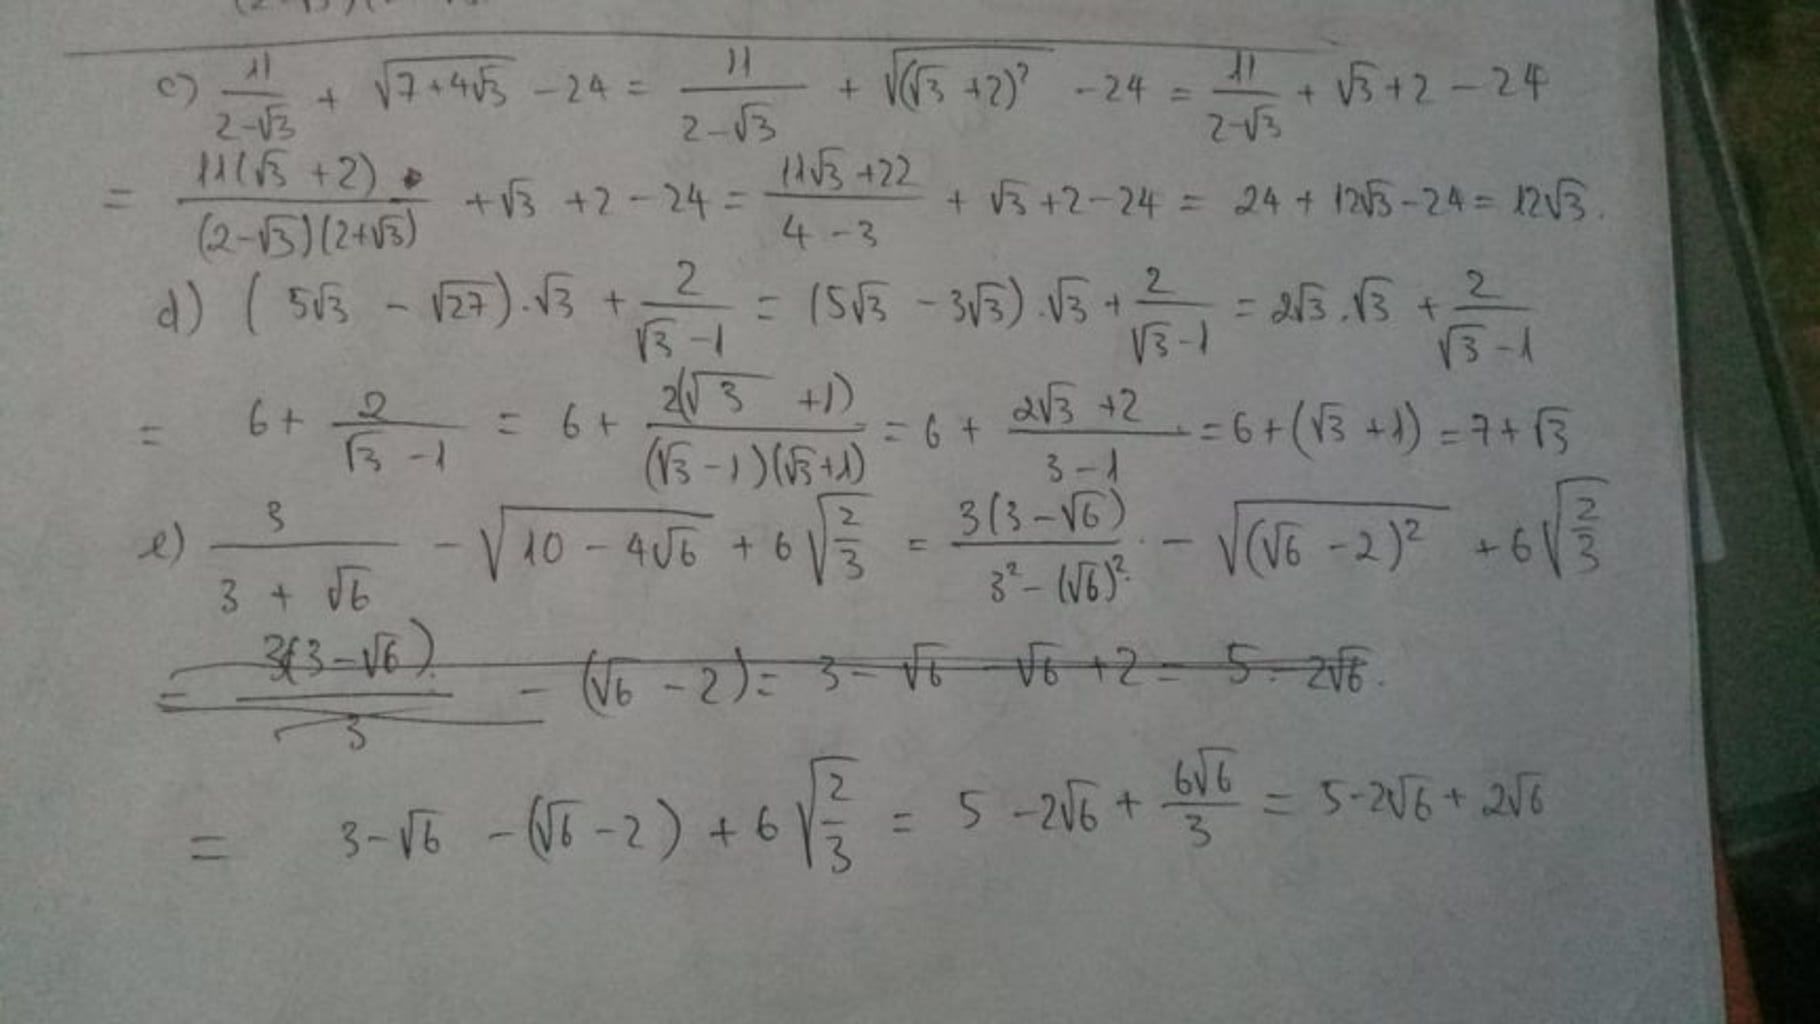 c) 11/(2-√3) + √(7+4√3) - 24 = 11/(2-√3) + √((√3+2)²) - 24 = 11/(2-√3) + √3+2 - 24
= 11(√3+2)/((2-√3)(2+√3)) + √3 + 2 - 24 = (11√3+22)/(4-3) + √3+2-24 = 24 + 12√3-24 = 12√3.
d) (5√3 - √27).√3 + 2/(√3-1) = (5√3 - 3√3).√3 + 2/(√3-1) = 2√3.√3 + 2/(√3-1)
= 6+ 2/(√3-1) = 6+ 2(√3+1)/((√3-1)(√3+1)) = 6 + (2√3+2)/(3-1) = 6+(√3+1) = 7+√3
e) 3/(3+√6) - √(10-4√6) + 6√(2/3) = 3(3-√6)/(3²-(√6)²) - √((√6-2)²) + 6√(2/3)
= 3(3-√6)/3 - (√6-2) = 3-√6-√6+2 = 5-2√6.
= 3-√6 -(√6-2) + 6√(2/3) = 5 -2√6 + 6√6/3 = 5-2√6+ 2√6